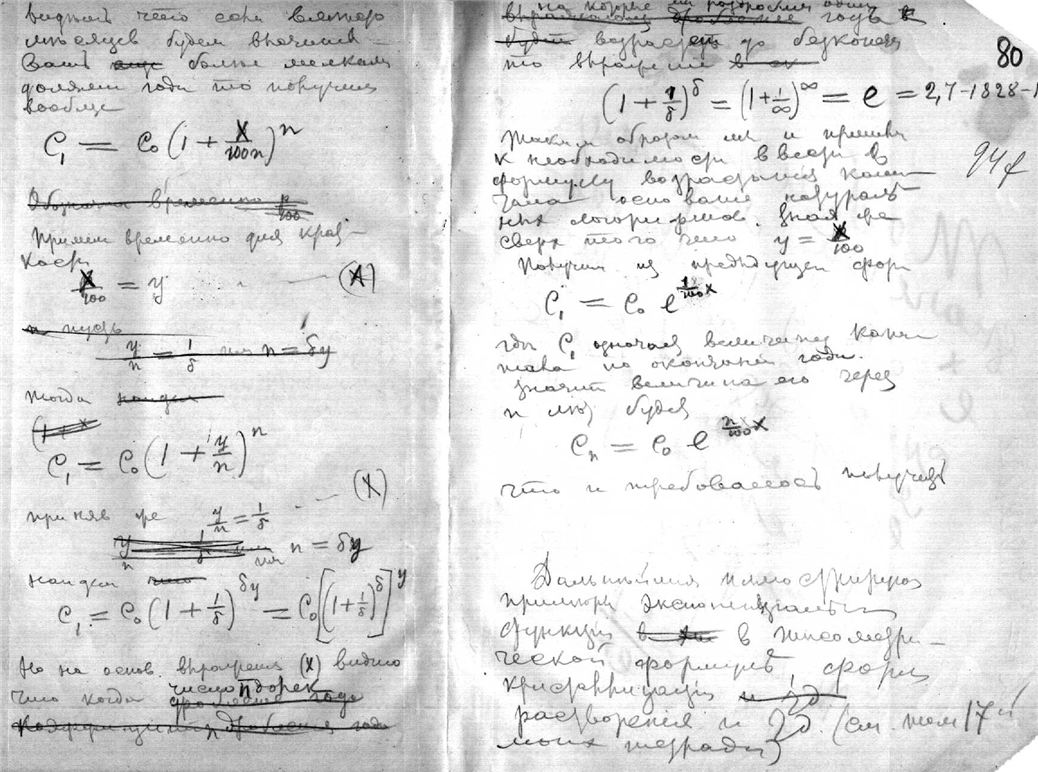 видимъ что если вместо
месяцев будем вычисл-
более мелкими
долями года то получим
вообще
C₁ = C₀ (1 + x/100n)ⁿ
временно n/100
Примем временно для крат-
кости
x/100 = y (A)
n пусть
y/n = 1/δ или n = δy
тогда найдем
C₁ = C₀ (1 + y/n)ⁿ
(X)
приняв же y/n = 1/δ
y/n 1/δ или n = δy
найдем
C₁ = C₀ (1 + 1/δ)^δy = C₀ [(1 + 1/δ)^δ]^y
Но на основ. выражения (X) видно
что когда число n
дробления года
n дробления года
года
возрастет до безконечн
то выражение в
80
(1 + 1/δ)^δ = (1 + 1/∞)^∞ = e = 2,7-1828-1
Таким образом мы и пришли
к необходимости ввести в
94
формулу возрастания капи-
тала основание натураль-
ных логорифмов. Зная же
сверх того что y = x/100
Получим из предыдущей форм
C₁ = C₀ e^(1/100 x)
где C₁ означает величину капи
тала по окончании года.
Значит величина его через
n лет будет
Cₙ = C₀ e^(n/100 x)
что и требовалось получить
Дальнейшия иллюстрируют
примеры экспоненциальн
функции в в
ческой формулѣ, форм
кристаллизации и
растворения и (см. том 17й
моих тетрадей)